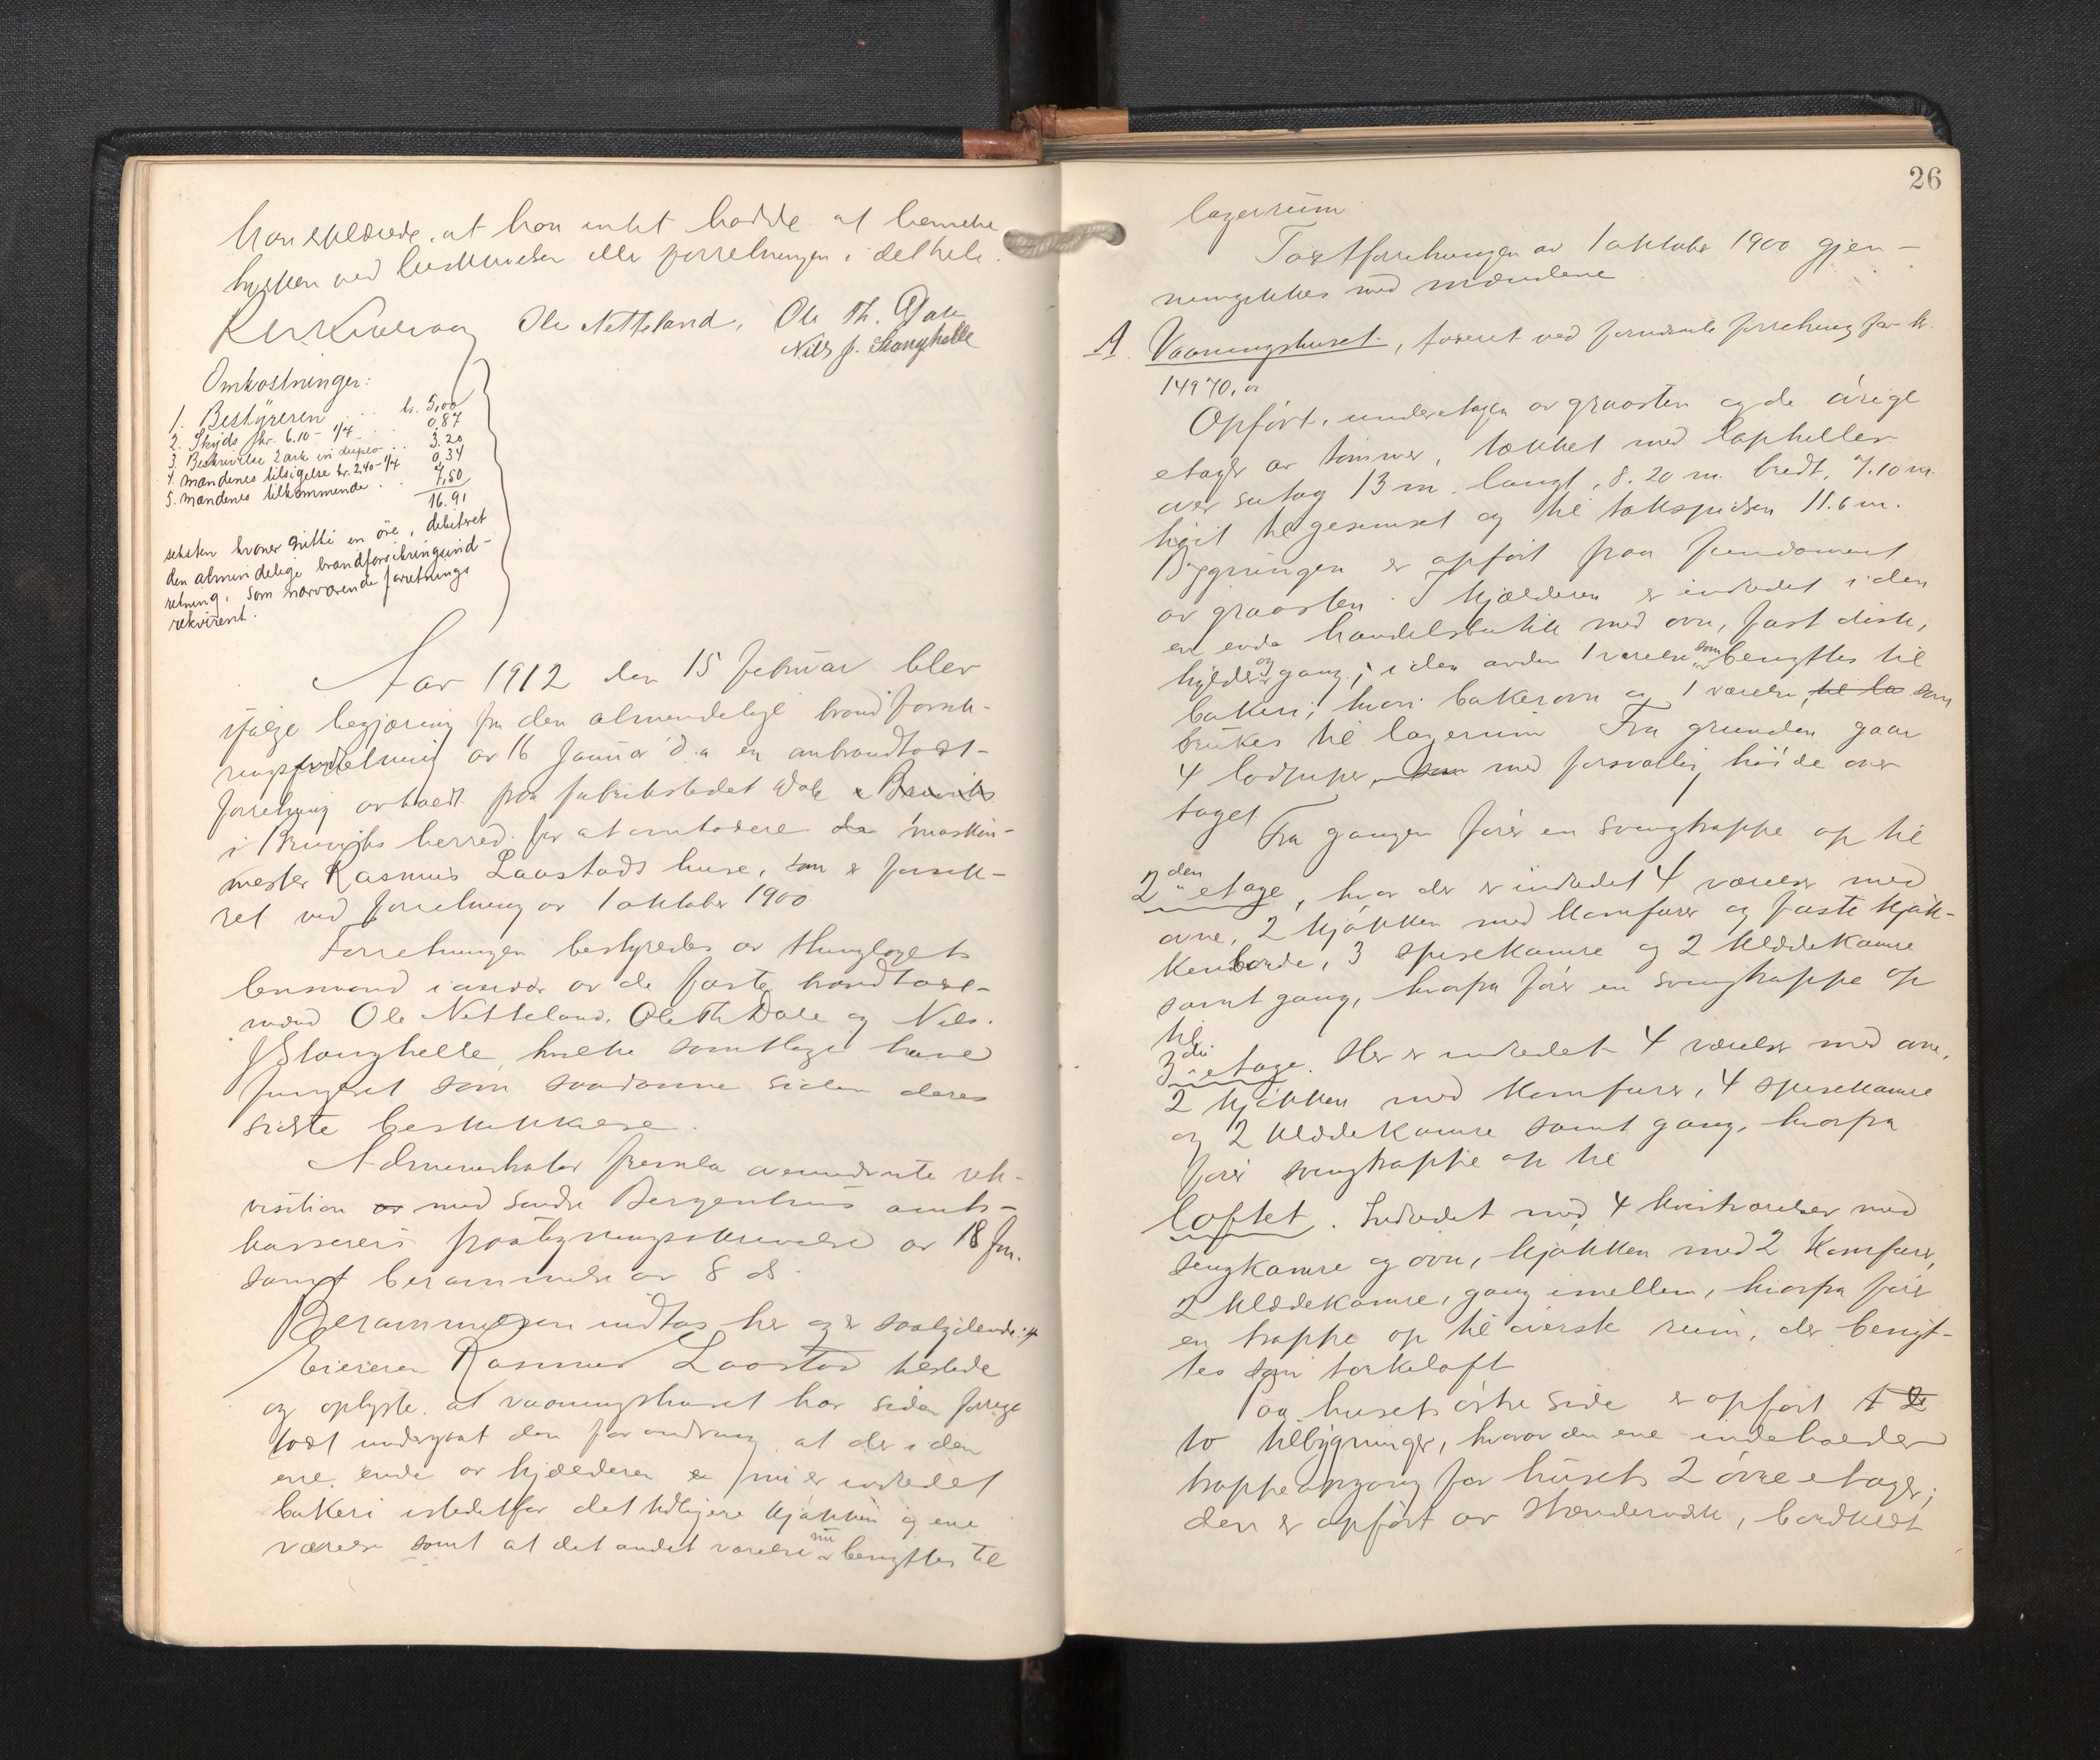 han erklærede, at han intet hadde at bemerke
hverken ved beskrivelsen eller forretningen i det hele.
Ole Netteland, Ole Th. Dale
Nils J. Stanghelle
Omkostninger:
1. Bestyreren . . . kr. 5,00
2. Skyds fhr. 6.10 - 1/7 . . 0,87
3. Beskrivelse 2 ark in duplo . . . 3.20
4. mændenes tilsigelse kr. 2,40 - 1/7 0,34
5. mændenes tilkommende . . 7,50
16.91
seksten kroner nitti en øre, debiteret
den almindelige brandforsikringsind-
retning, som nærværende forretnings
rekvirent.
Aar 1912 den 15 februar blev
ifølge begjæring fra den almindelige brandforsik-
ringsindretning av 16 januar d.a. en ombrandtakst-
forretning avholdt paa fabrikstedet Dale i Bruvik
i Bruviks herred for at omtaksere de maskin-
mester Rasmus Laastads huse, som er forsik-
ret ved forretning av 1 oktober 1900.
Forretningen bestyredes av thinglagets
lensmand i nærvær av de faste brandtakst-
mænd Ole Netteland, Ole Th Dale og Nils
J Stanghelle, hvilke samtlige have
fungeret som saadanne siden deres
sidste beskikkelse.
Administrator fremla ovennævnte rek-
visition med Søndre Bergenhus amts-
kasserers paategningsskrivelse av 18 jan.
samt berammelse av 8 ds.
Berammelsen indtas her og er saalydende:
Eieren Rasmus Laastad tilstede
og oplyste, at vaaningshuset har siden forrige
takst undergaat den forandring, at der i den
ene ende av kjælderen nu er indredet
bakeri istedetfor det tidligere kjøkken og ene
værelse samt at det andet værelse nu benyttes til
26
lagerrum
Takstforretningen av 1 oktober 1900 gjen-
nemgikkes med mændene
A. Vaaningshuset, takseret ved forrige forretning for kr.
14970,00
Opført, underetagen av graasten og de øvrige
etager av tømmer, tækket med lapheller
over sutag 13 m. langt, 8.20 m. bredt, 7.10 m.
høit til gesimset og til takspidsen 11.6 m.
Bygningen er opført paa fundament
av graasten. I kjælderen er indredet i den
ene ende handelsbutik med ovn, fast disk,
hylder og gang; i den anden 1 værelse som benyttes til
bakeri, hvori bakerovn og 1 værelse, til la som
brukes til lagerrum Fra grunden gaar
4 lodpiper, som med forsvarlig høide over
taget Fra gangen fører en svingtrappe op til
2den etage, hvor der er indredet 4 værelser med
ovne, 2 kjøkken med komfurer og faste kjøk-
kenborde, 3 spisekamre og 2 klædekamre
samt gang, hvorfra fører en svingtrappe op
til
3die etage. Her er indredet 4 værelser med ovne,
2 kjøkken med komfurer, 4 spisekamre
og 2 klædekamre samt gang, hvorfra
fører svingtrappe op til
loftet. Indredet med 4 kvistværelser med
sengkamre og ovn, kjøkken med 2 komfurer,
2 klædekamre, gang imellem, hvorfra fører
en trappe op til øverste rum, der benyt-
tes som tørkeloft
Paa husets østre side er opført
to tilbygninger, hvorav den ene indeholder
trappeopgang for husets 2 øvre etager;
den er opført av stenderverk, bordklædt